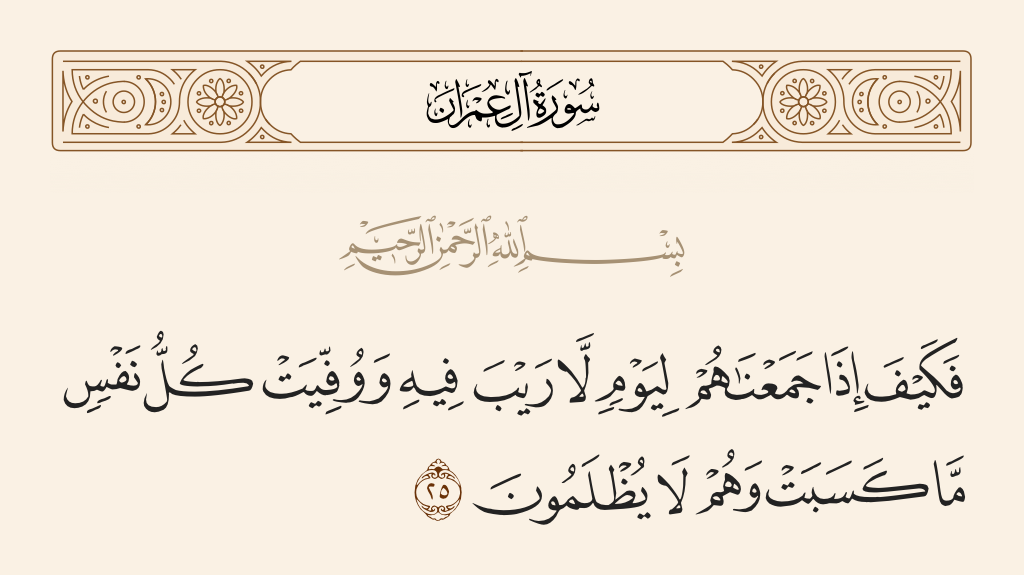 سُورَةُ آلِ عِمْرَان
بِسْمِ ٱللَّهِ ٱلرَّحْمَٰنِ ٱلرَّحِيمِ
فَكَيْفَ إِذَا جَمَعْنَاهُمْ لِيَوْمٍ لَّا رَيْبَ فِيهِ وَوُفِّيَتْ كُلُّ نَفْسٍ
مَّا كَسَبَتْ وَهُمْ لَا يُظْلَمُونَ ٢٥